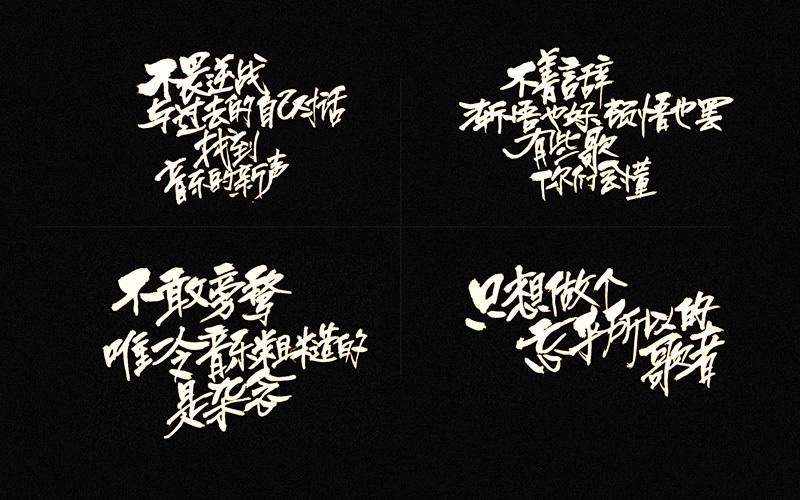 不畏逆战
与过去的自己对话
找到
音乐的新声
不善言辞
渐悟也好、顿悟也罢
有些歌
你们会懂
不敢旁骛
唯一令音乐粗糙的
是杂念
只想做个
忘乎所以的
歌者